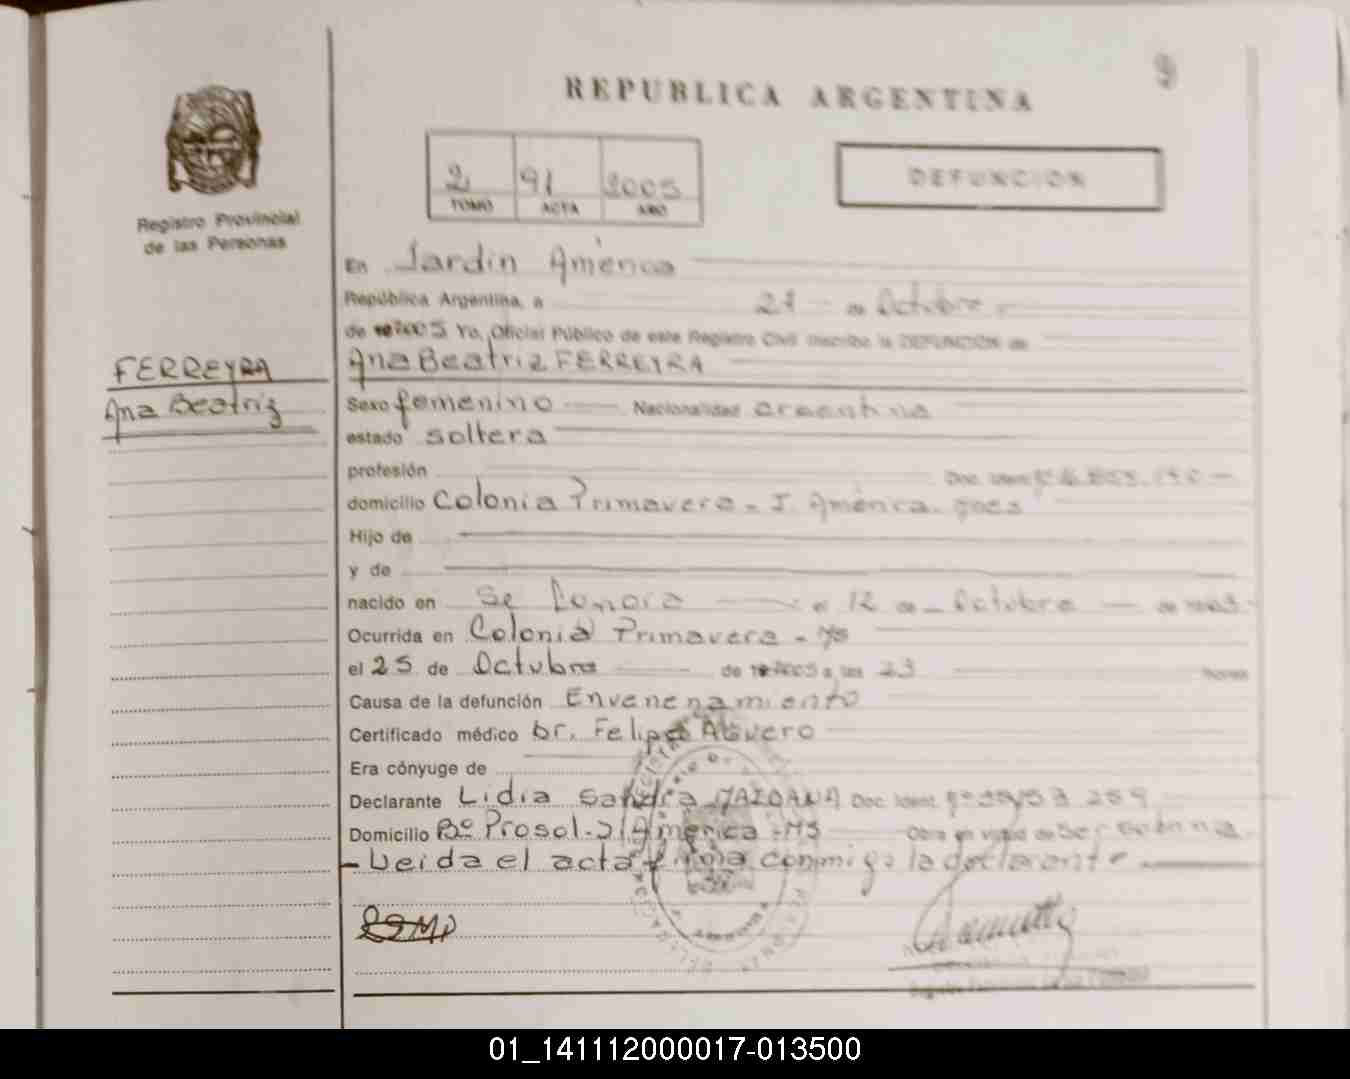 9
REPUBLICA ARGENTINA
2 91 2005
TOMO ACTA AÑO
DEFUNCION
Registro Provincial
de las Personas
En Jardín América
República Argentina, a 27 de Octubre
de 2005 Yo, Oficial Público de este Registro Civil inscribo la DEFUNCION de
FERREYRA
Ana Beatriz
Ana Beatriz FERREYRA
Sexo femenino Nacionalidad argentina
estado soltera
profesión Doc. Ident.
domicilio Colonia Primavera - J. América
Hijo de
y de
nacido en Se Ignora el 12 de Octubre de
Ocurrida en Colonia Primavera -
el 25 de Octubre de 2005 a las 23 horas
Causa de la defunción Envenenamiento
Certificado médico Dr. Felipe
Era cónyuge de
Declarante Lidia Sandra MAIDANA Doc. Ident.
Domicilio Bº Prosol - J. América - MS Obra en virtud de
- Leida el acta firma conmigo la declarante
01_141112000017-013500